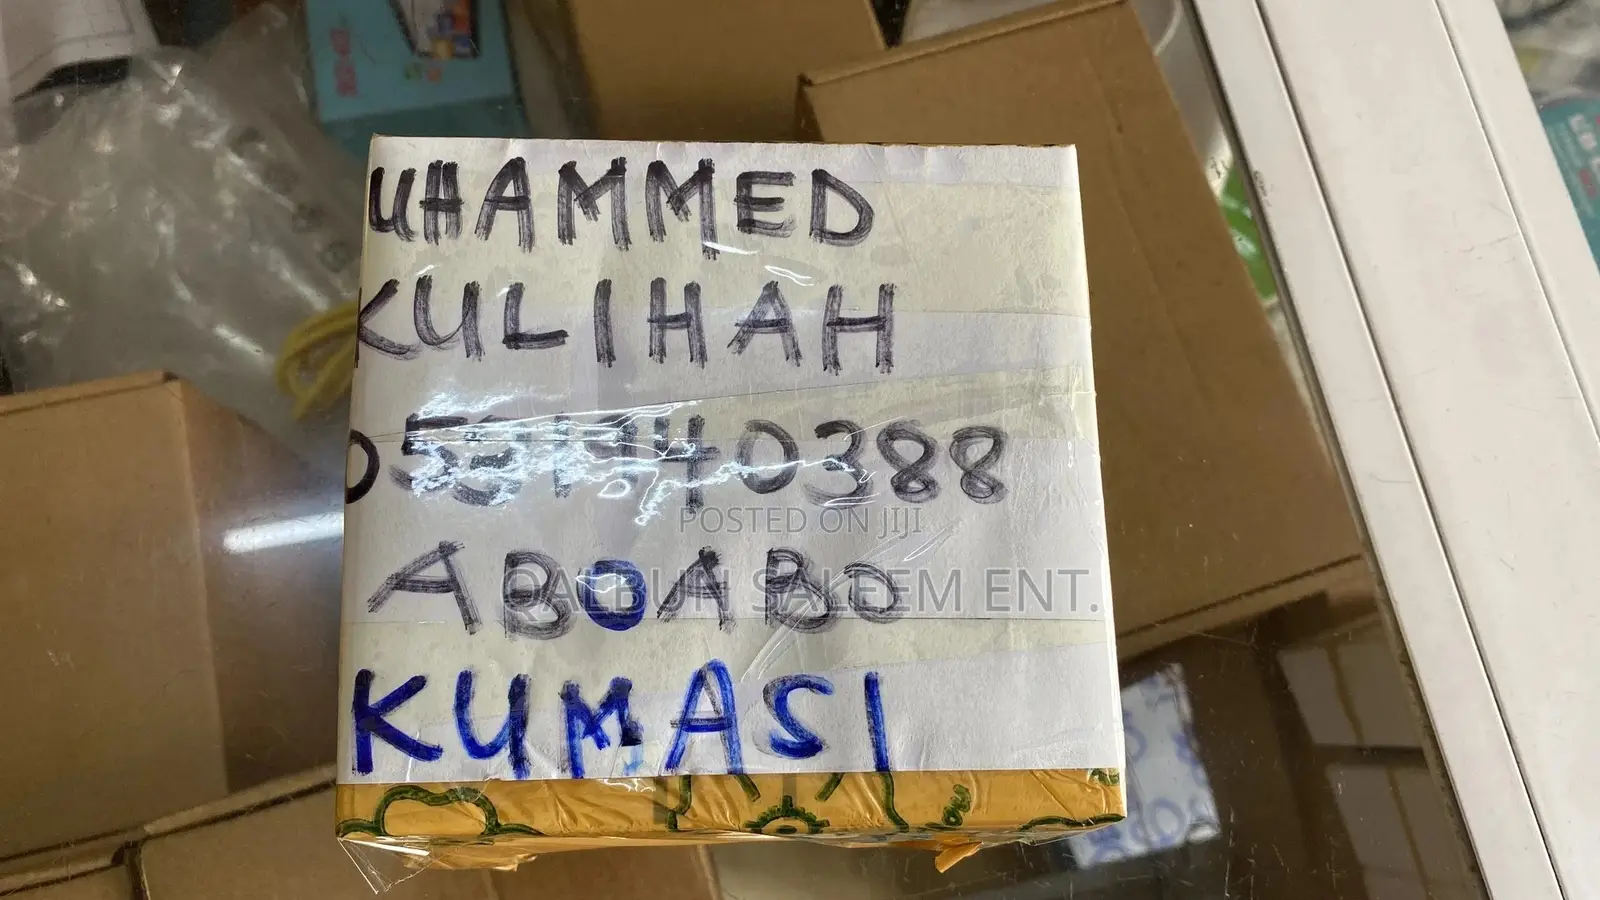 UHAMMED
KULIHAH
ABOABO
KUMASI
POSTED ON JIJI
QALBUN SALEEM ENT.